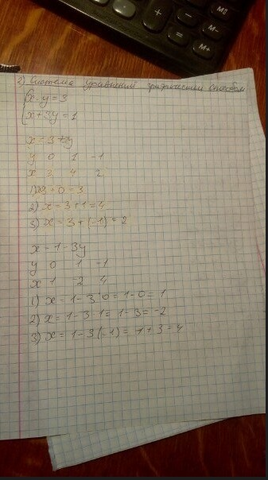 2) Система уравнений графический способом
{x-y=3
{x+3y=1
x=3+y
y 0 1 -1
x 3 4 2
1) x=3+0=3
2) x=3+1=4
3) x=3+(-1)=2
x=1-3y
y 0 1 -1
x 1 -2 4
1) x=1-3·0=1-0=1
2) x=1-3·1=1-3=-2
3) x=1-3(-1)=1+3=4